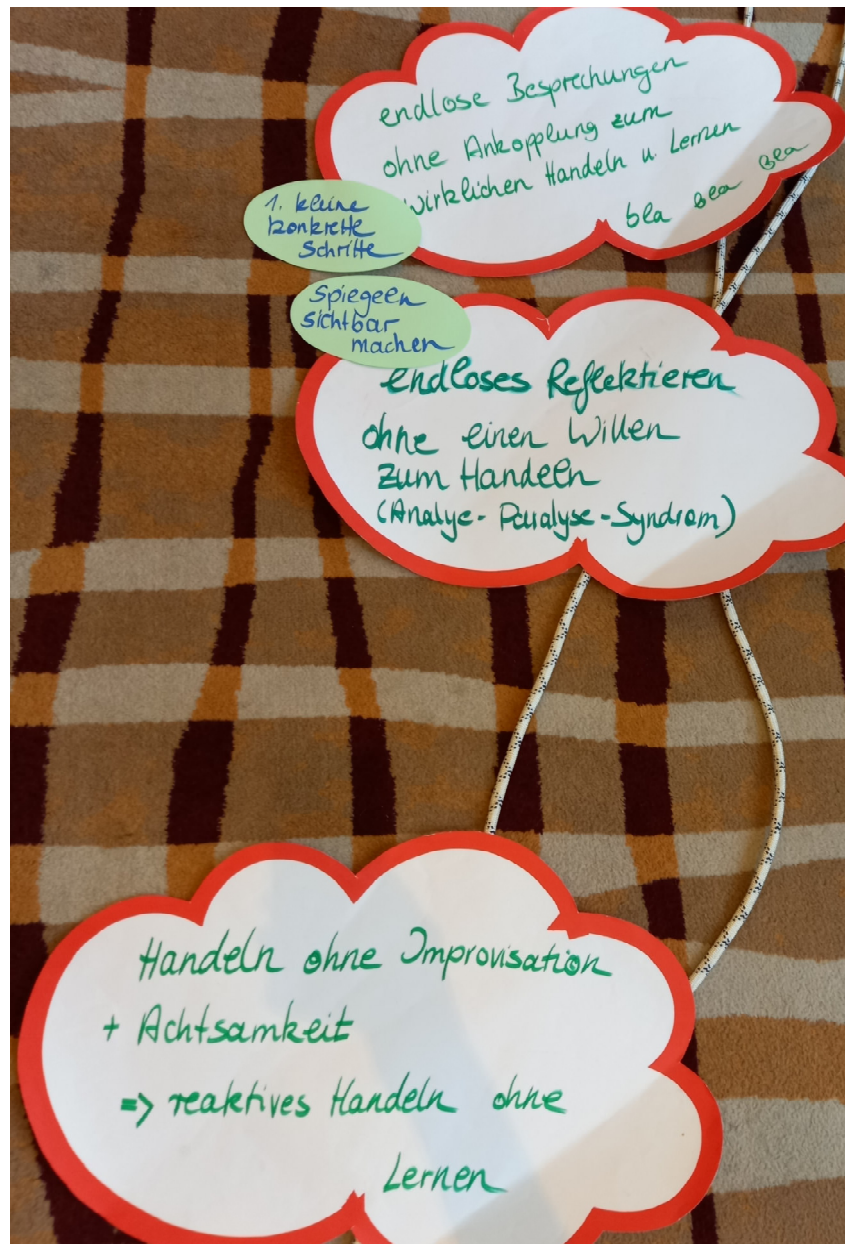 endlose Besprechungen
ohne Ankopplung zum
wirklichen Handeln u. Lernen
bla bla bla
1. kleine
konkrette
Schritte
Spiegeln
sichtbar
machen
endloses Reflektieren
ohne einen Willen
zum Handeln
(Analye-Paralyse-Syndrom)
Handeln ohne Improvisation
+ Achtsamkeit
=> reaktives Handeln ohne
Lernen